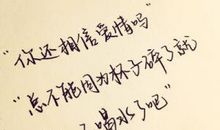 "你还相信爱情吗"
"总不能因为杯子碎了就
喝水了吧"